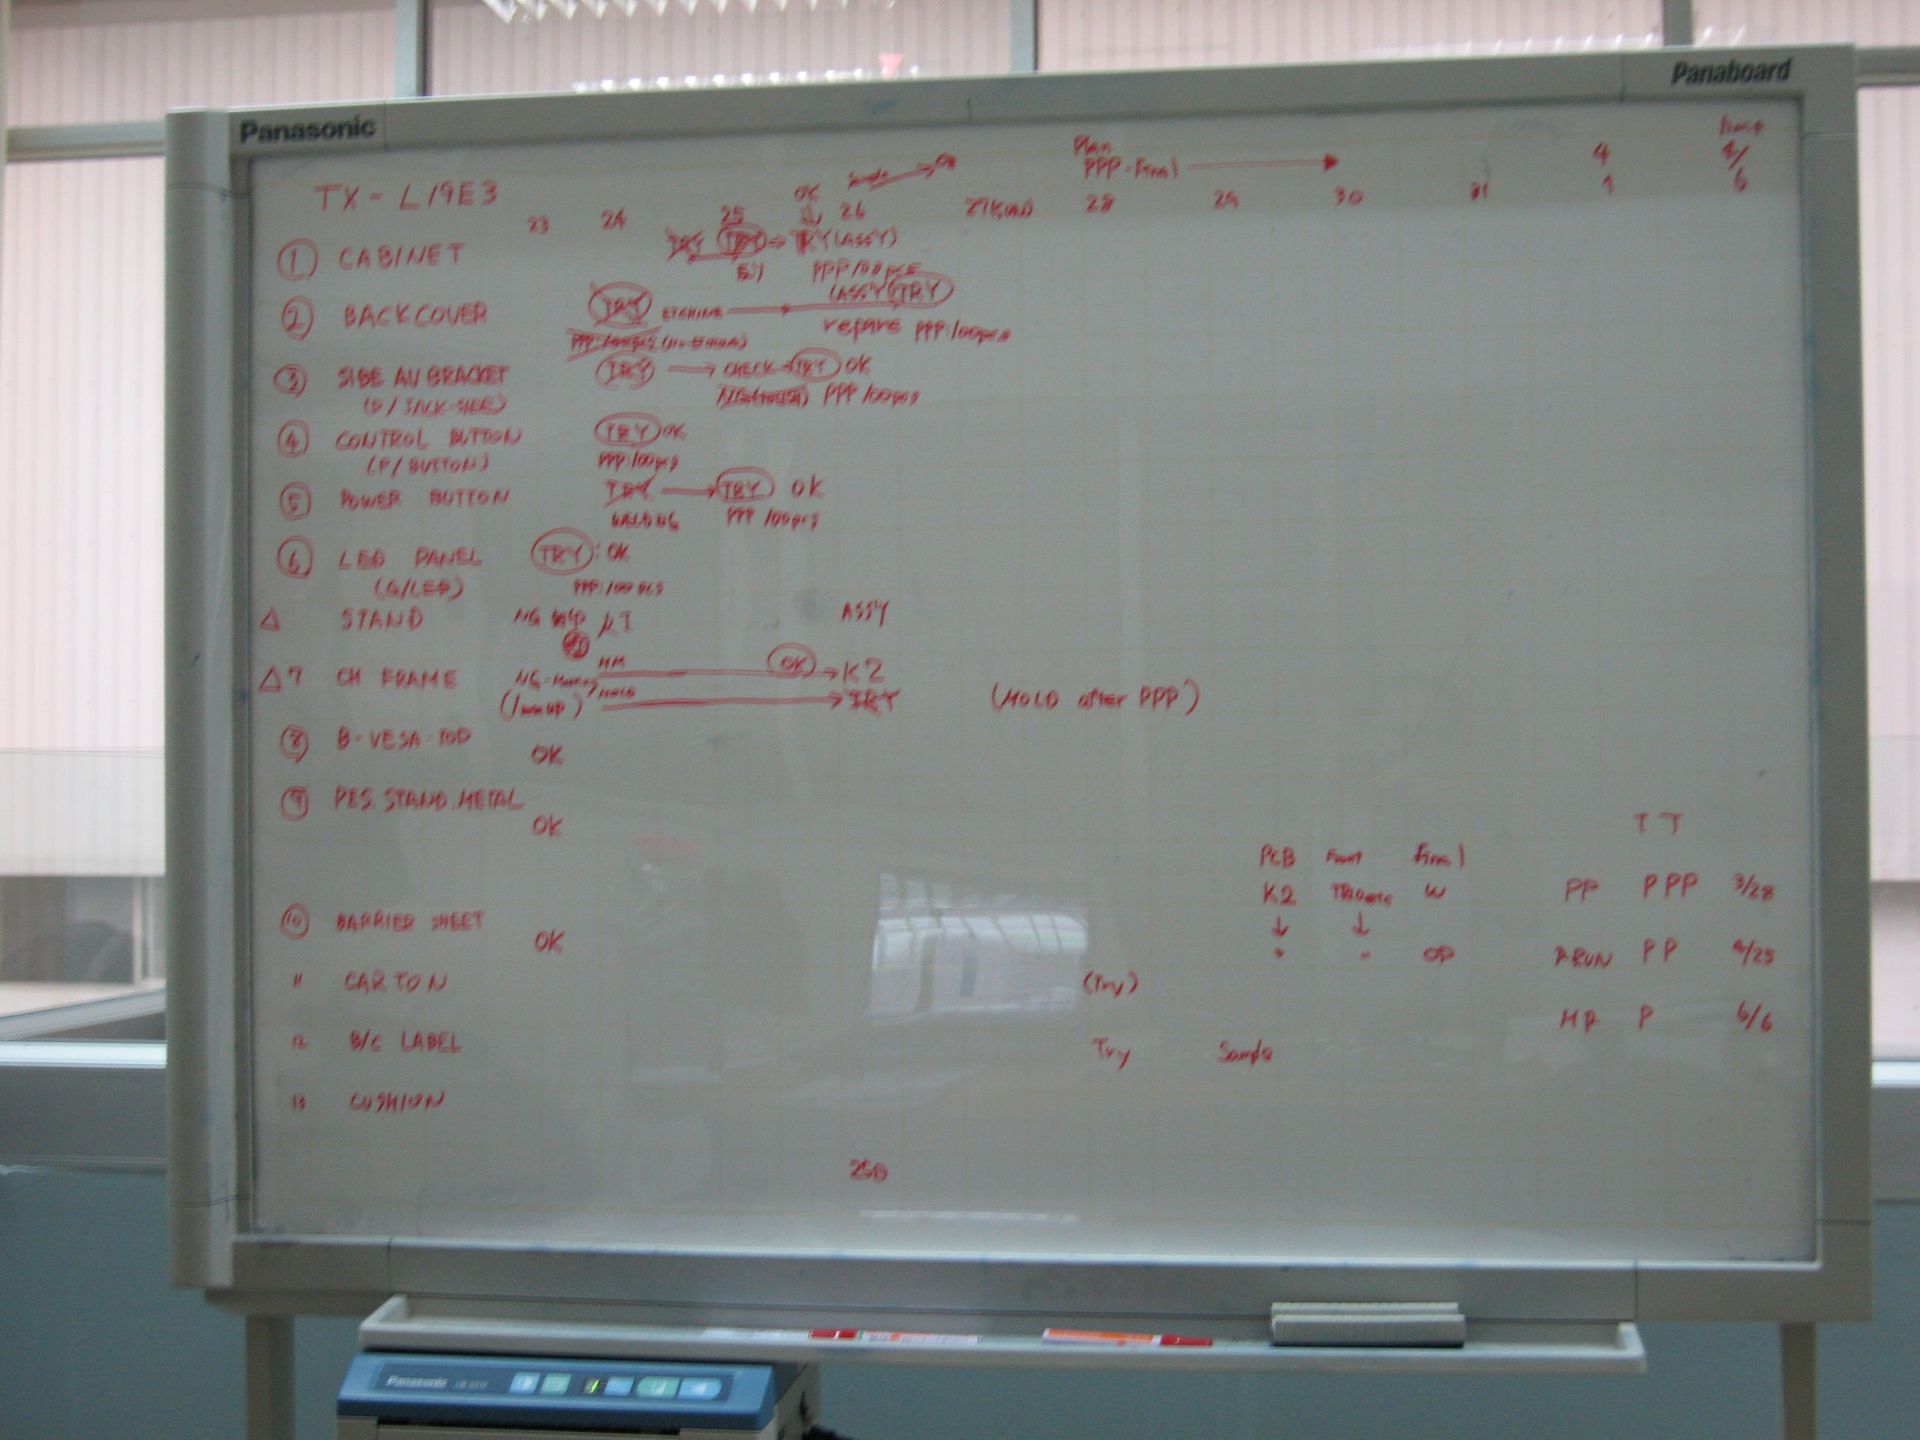 Panasonic
Panaboard
Plan
PPP-Final
4/6
OK
TX-L19E3
23 24 25 26 28 29 30 31 4 1
① CABINET TRY TRY TRY (ASSY)
PPP/100pcs
② BACKCOVER TRY (ASSY) TRY
repare PPP:100pcs
PPP:100pcs
③ SIDE AV BRACKET TRY CHECK TRY OK
(P/JACK-SIDE) PPP 100pcs
④ CONTROL BUTTON TRY OK
(P/BUTTON) PPP 100pcs
⑤ POWER BUTTON TRY TRY OK
PPP 100pcs
⑥ LED PANEL TRY: OK
(G/LED) PPP:100 pcs
△ STAND NG ASSY
△7 CH FRAME OK K2
TRY (HOLD after PPP)
⑧ B-VESA-TOP
OK
⑨ PES.STAND.METAL
OK
TT
PCB Front final
K2 W PP PPP 3/28
⑩ BARRIER SHEET
OK
OP PP 4/25
11 CARTON (Try)
MP P 6/6
12 B/C LABEL Try Sample
13 CUSHION
250
Panasonic